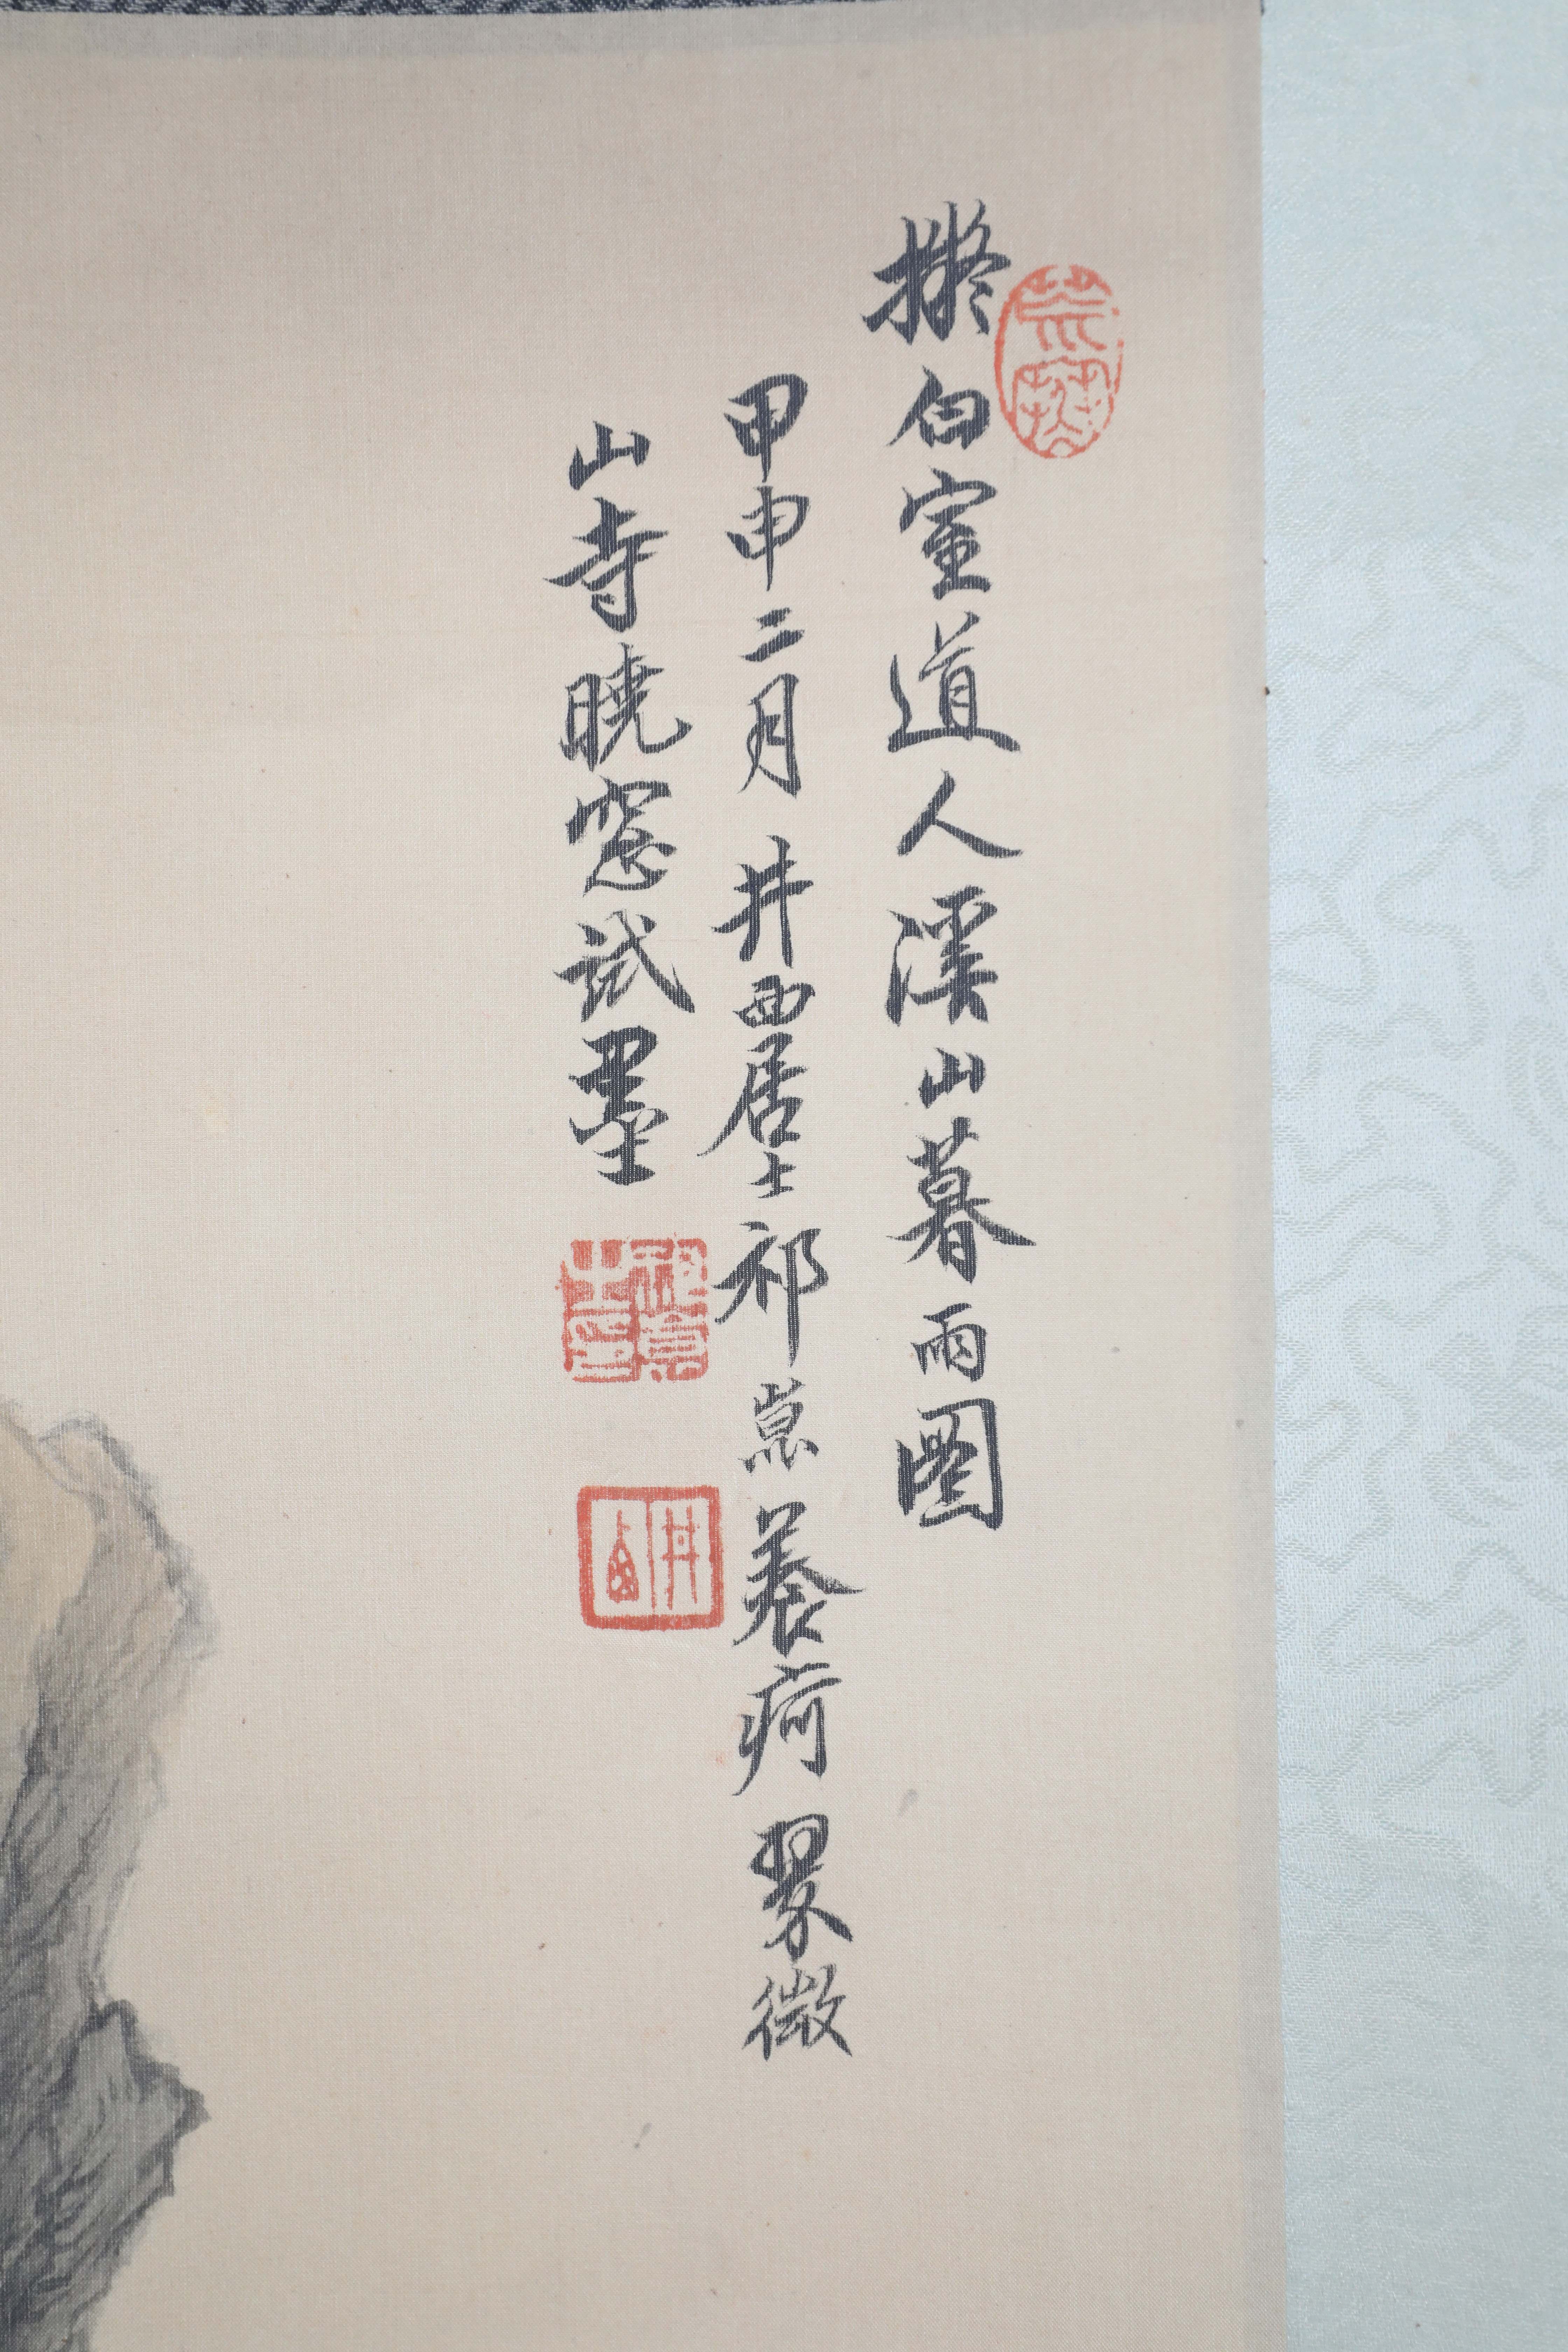 擬白室道人溪山暮雨圖
甲申二月井西居士祁崑養疴翠微
山寺曉窓試墨
井西